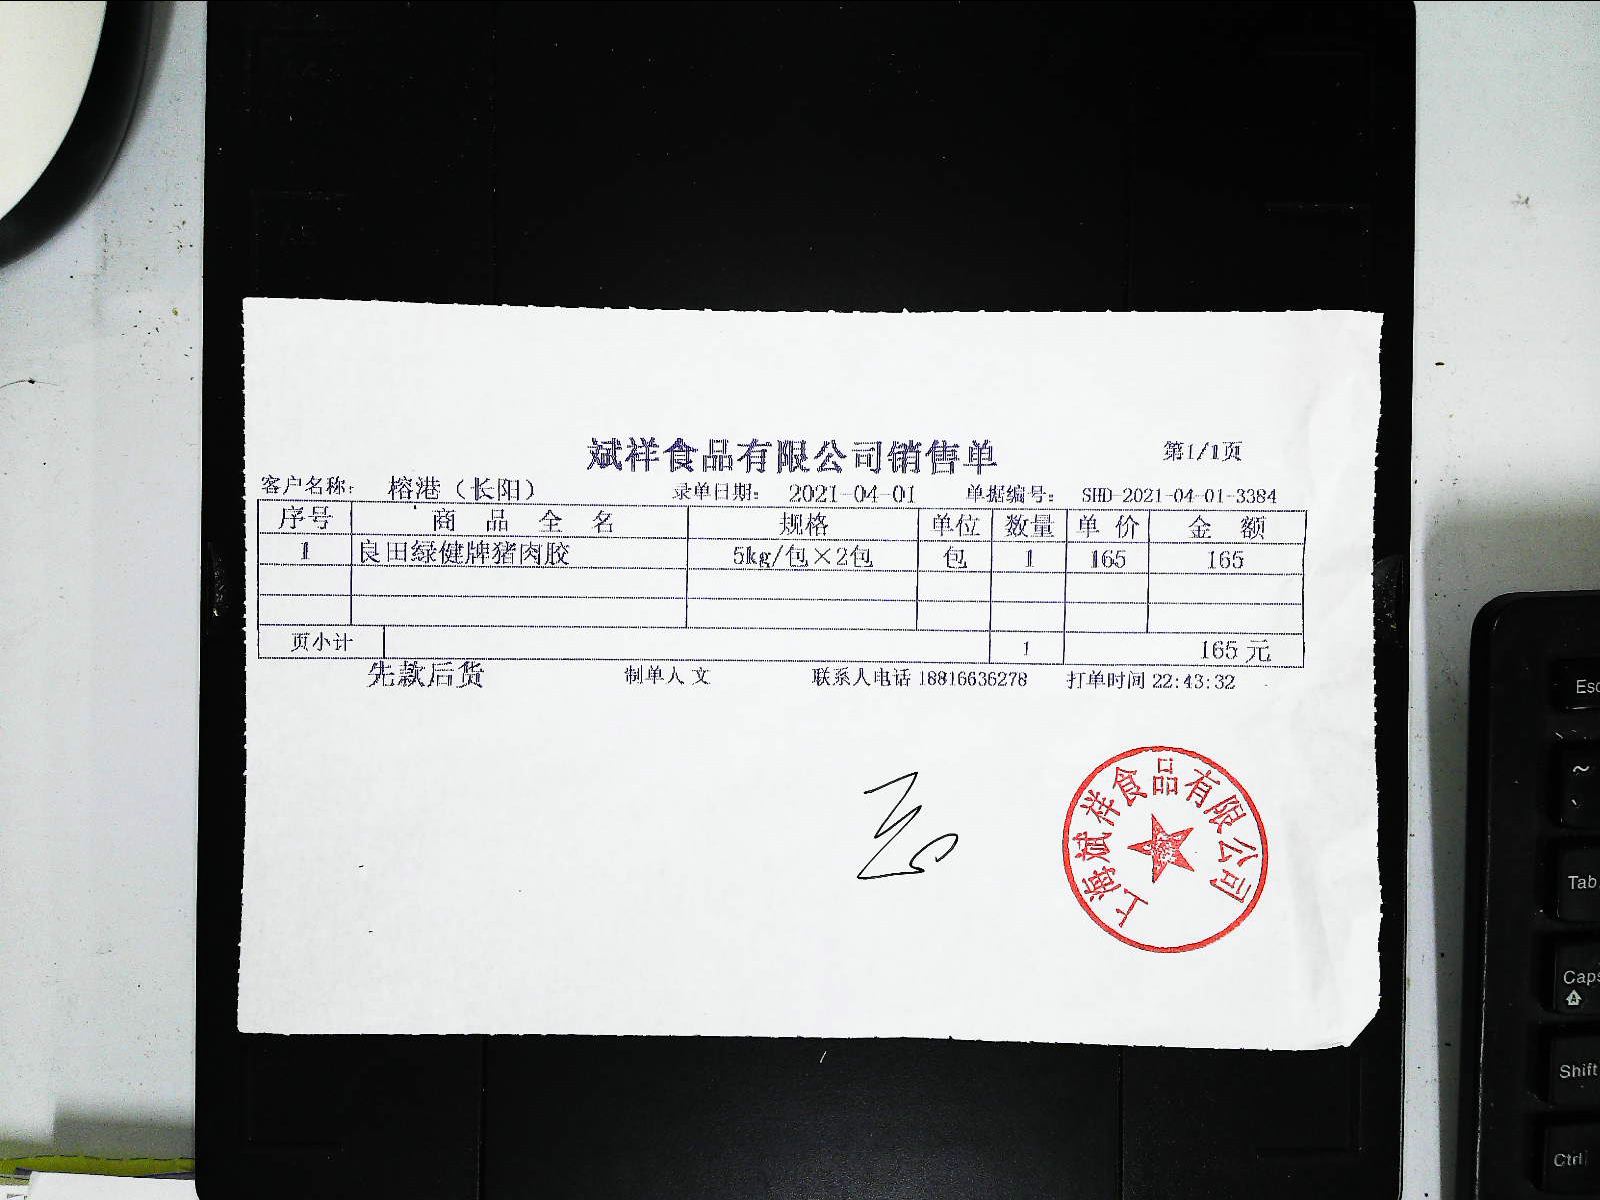 斌祥食品有限公司销售单 第1/1页
客户名称： 榕港（长阳） 录单日期： 2021-04-01 单据编号： SHD-2021-04-01-3384
序号 商品全名 规格 单位 数量 单价 金额
1 良田绿健牌猪肉胶 5kg/包×2包 包 1 165 165
页小计 1 165元
先款后货 制单人 文 联系人电话 18816636278 打单时间 22:43:32
上海斌祥食品有限公司
Esc
~
Tab
Caps
A
Shift
Ctrl